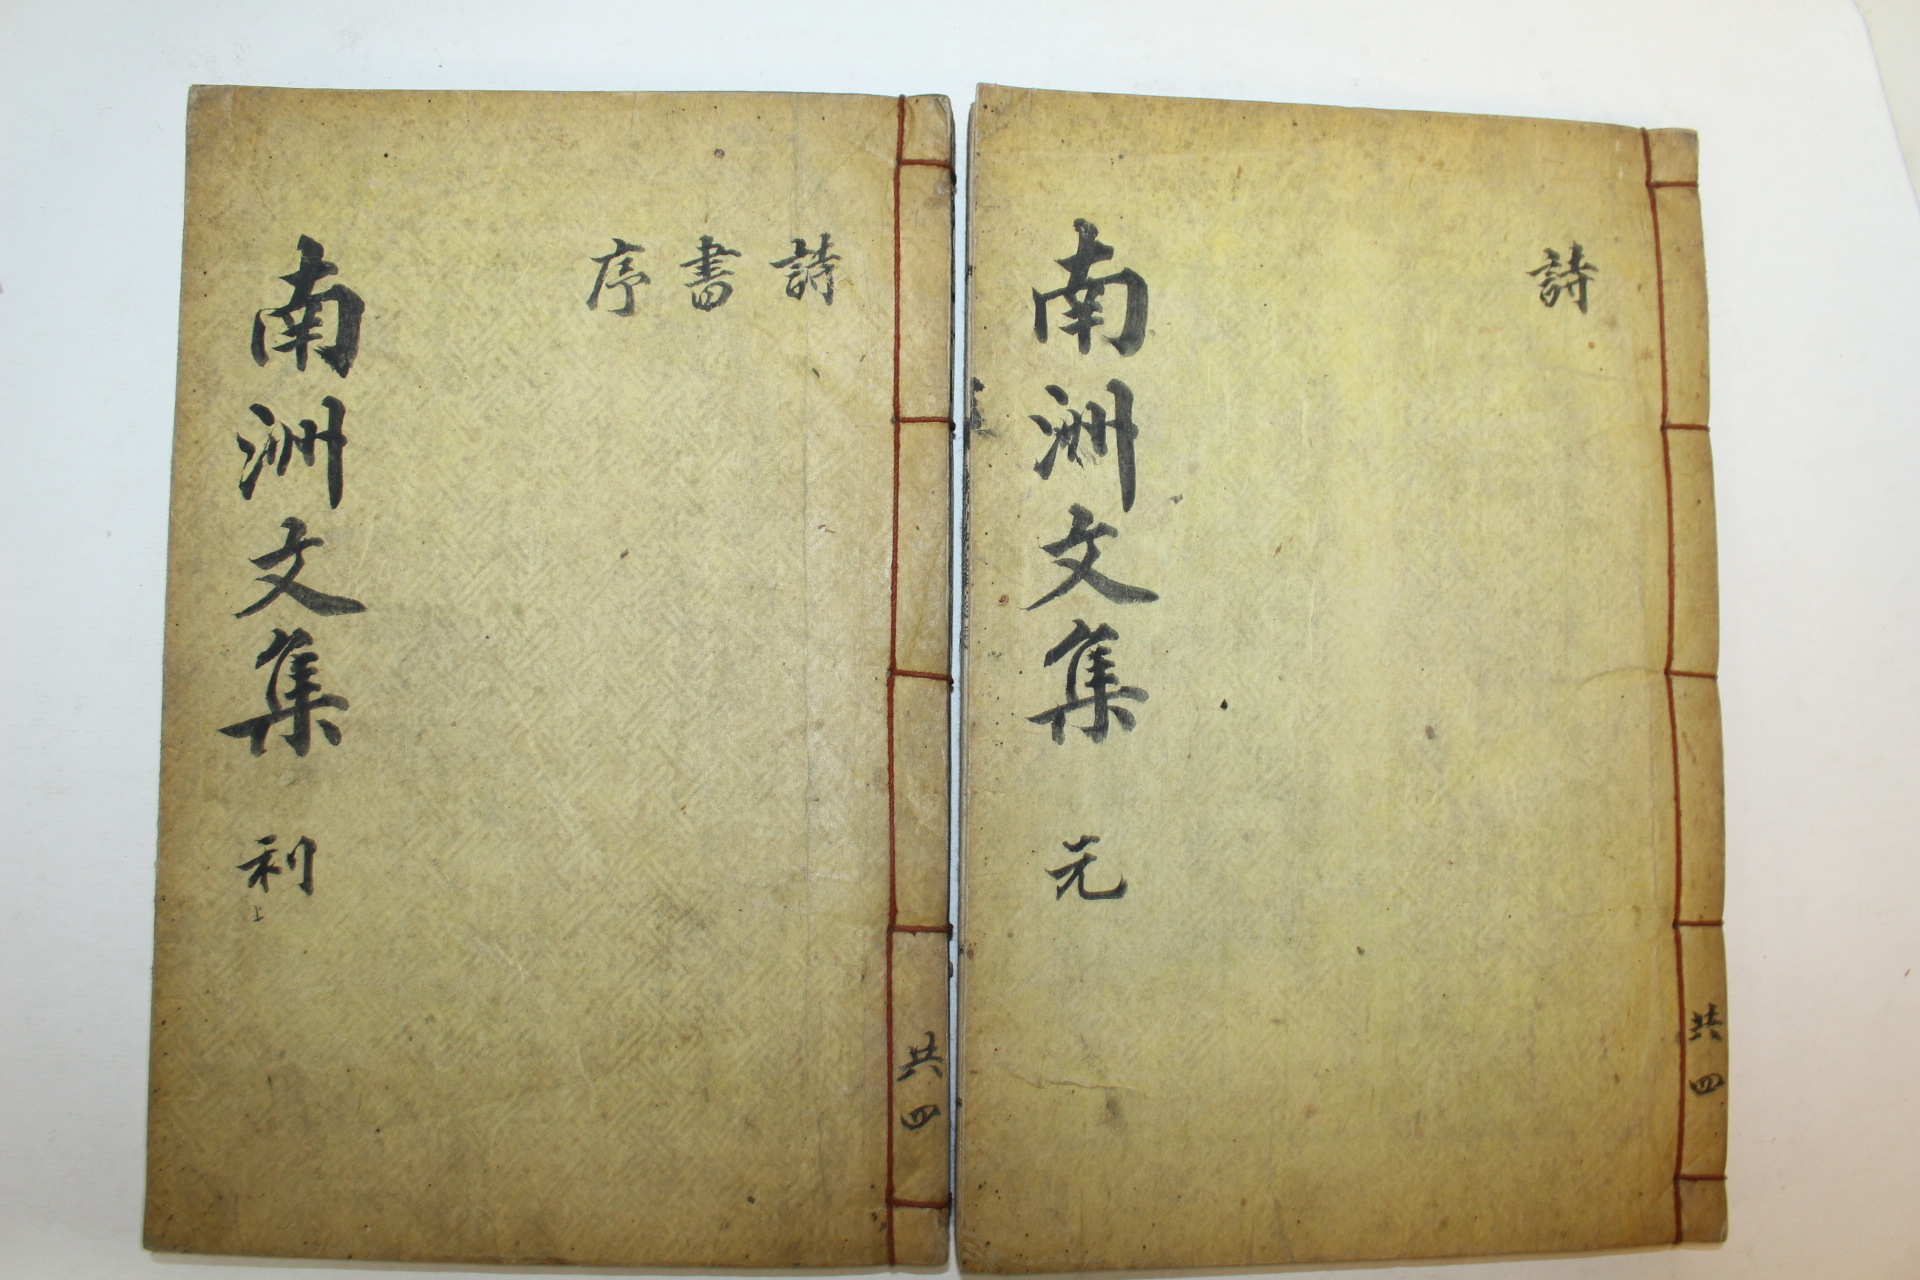 詩
南洲文集 元
共四
詩
書
序
南洲文集 利
上
共四